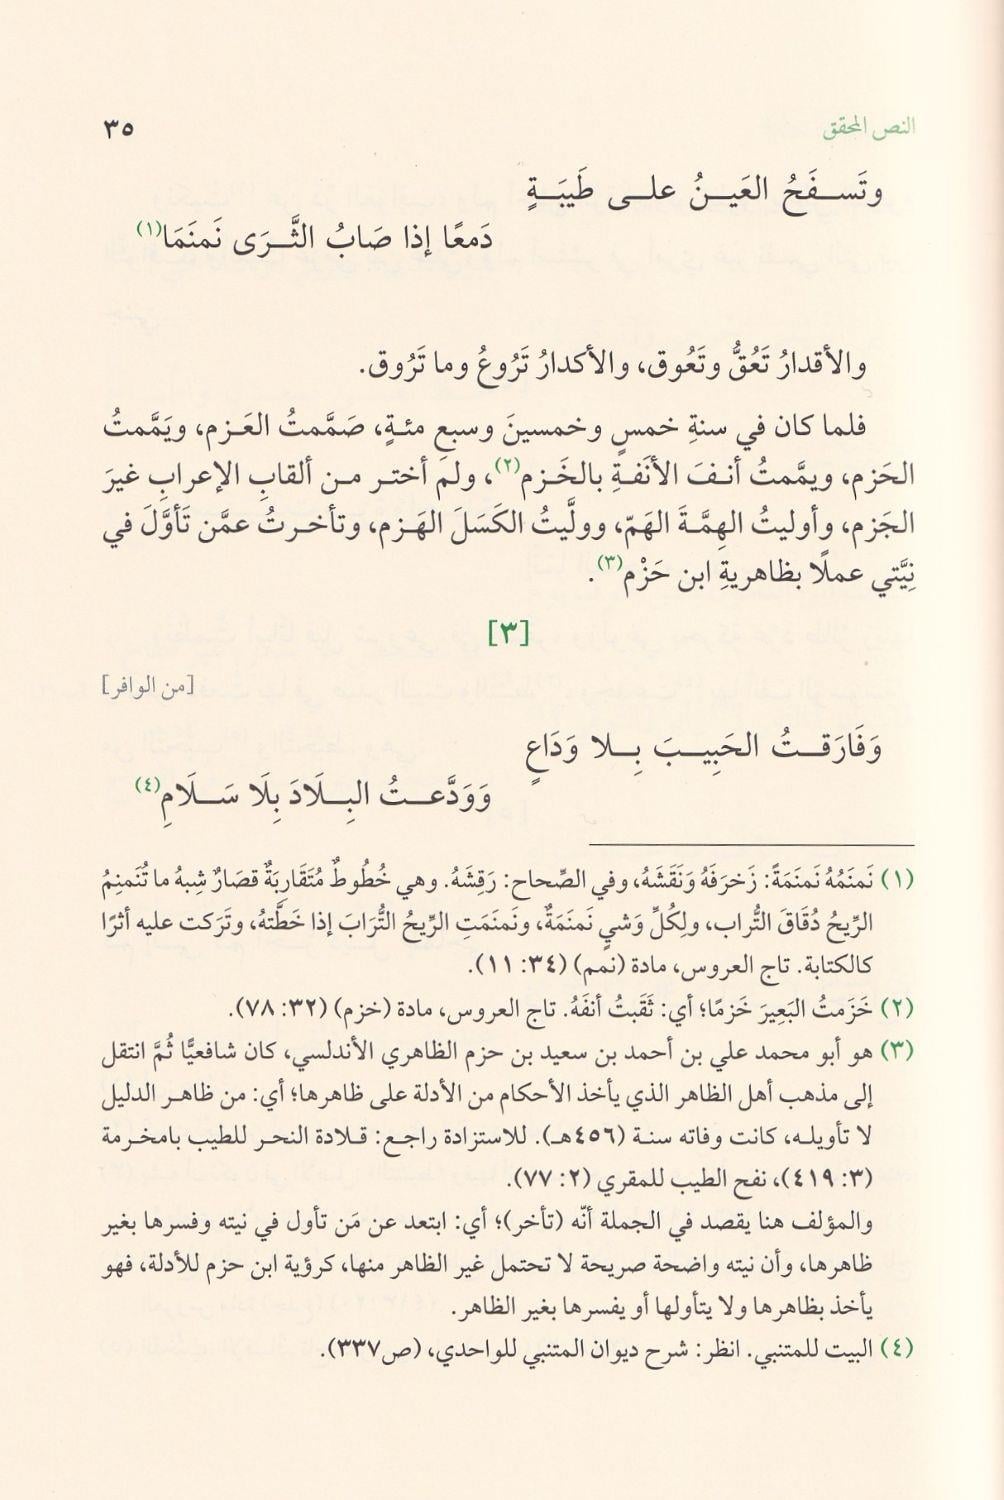 النص المحقق
٣٥
وتَســفَحُ العَيــنُ علــى طَيبَــةٍ
دَمعًا إذا صَابُ الثَّــرَى نَمنَمَا(١)
والأقدارُ تَعُقُّ وتَعُوق، والأكدارُ تَرُوعُ وما تَرُوق.
فلما كان في سنةِ خمسٍ وخمسينَ وسبعِ مئةٍ، صَمَّمتُ العَـزم، ويَمَّمتُ
الحَزم، ويمَّمتُ أنـفَ الأنَفـةِ بالخَـزم(٢)، ولم أختـر مـن ألقابِ الإعرابِ غيرَ
الجَزم، وأوليتُ الهِمَّـةَ الهَمّ، وولَّيتُ الكَسَلَ الهَـزم، وتأخـرتُ عمَّن تَأوَّلَ في
نِيَّتي عملًا بظاهريةِ ابن حَزْم(٣).
[٣]
[من الوافر]
وَفَارَقــتُ الحَبِيــبَ بِــلا وَدَاعٍ
وَوَدَّعــتُ البِــلَادَ بِلَا سَــلَامِ(٤)
(١) نَمنَمُهُ نَمنَمَةً: زَخرَفَهُ وَنَقَشَهُ، وفي الصِّحاح: رَقِشَهُ. وهي خُطُوطٌ مُتَقَارِبَةٌ قصَارٌ شِبهُ ما تُنَمنِمُ
الرِّيحُ دُقَاقَ التُّراب، ولِكُلِّ وَشيٍ نَمنَمَةٌ، ونَمنَمَتِ الرِّيحُ التُّرَابَ إذا خَطَّتهُ، وتَرَكت عليه أثرًا
كالكتابة. تاج العروس، مادة (نمم) (٣٤: ١١).
(٢) خَزَمتُ البَعِيرَ خَزمًا؛ أي: ثَقَبتُ أنفَهُ. تاج العروس، مادة (خزم) (٣٢: ٧٨).
(٣) هو أبو محمد علي بن أحمد بن سعيد بن حزم الظاهري الأندلسي، كان شافعيًّا ثُمَّ انتقل
إلى مذهب أهل الظاهر الذي يأخذ الأحكام من الأدلة على ظاهرها؛ أي: من ظاهـر الدليل
لا تأويلـه، كانت وفاته سنـة (٤٥٦هـ). للاستزادة راجـع: قـلادة النحـر للطيب بامخـرمة
(٣: ٤١٩)، نفح الطيب للمقري (٢: ٧٧).
والمؤلف هنا يقصد في الجملة أنّه (تأخر)؛ أي: ابتعد عن مَن تأول في نيته وفسرها بغير
ظاهرها، وأن نيته واضحة صريحة لا تحتمل غير الظاهر منها، كرؤية ابن حزم للأدلة، فهو
يأخذ بظاهرها ولا يتأولها أو يفسرها بغير الظاهر.
(٤) البيت للمتنبي. انظر: شرح ديوان المتنبي للواحدي، (ص٣٣٧).